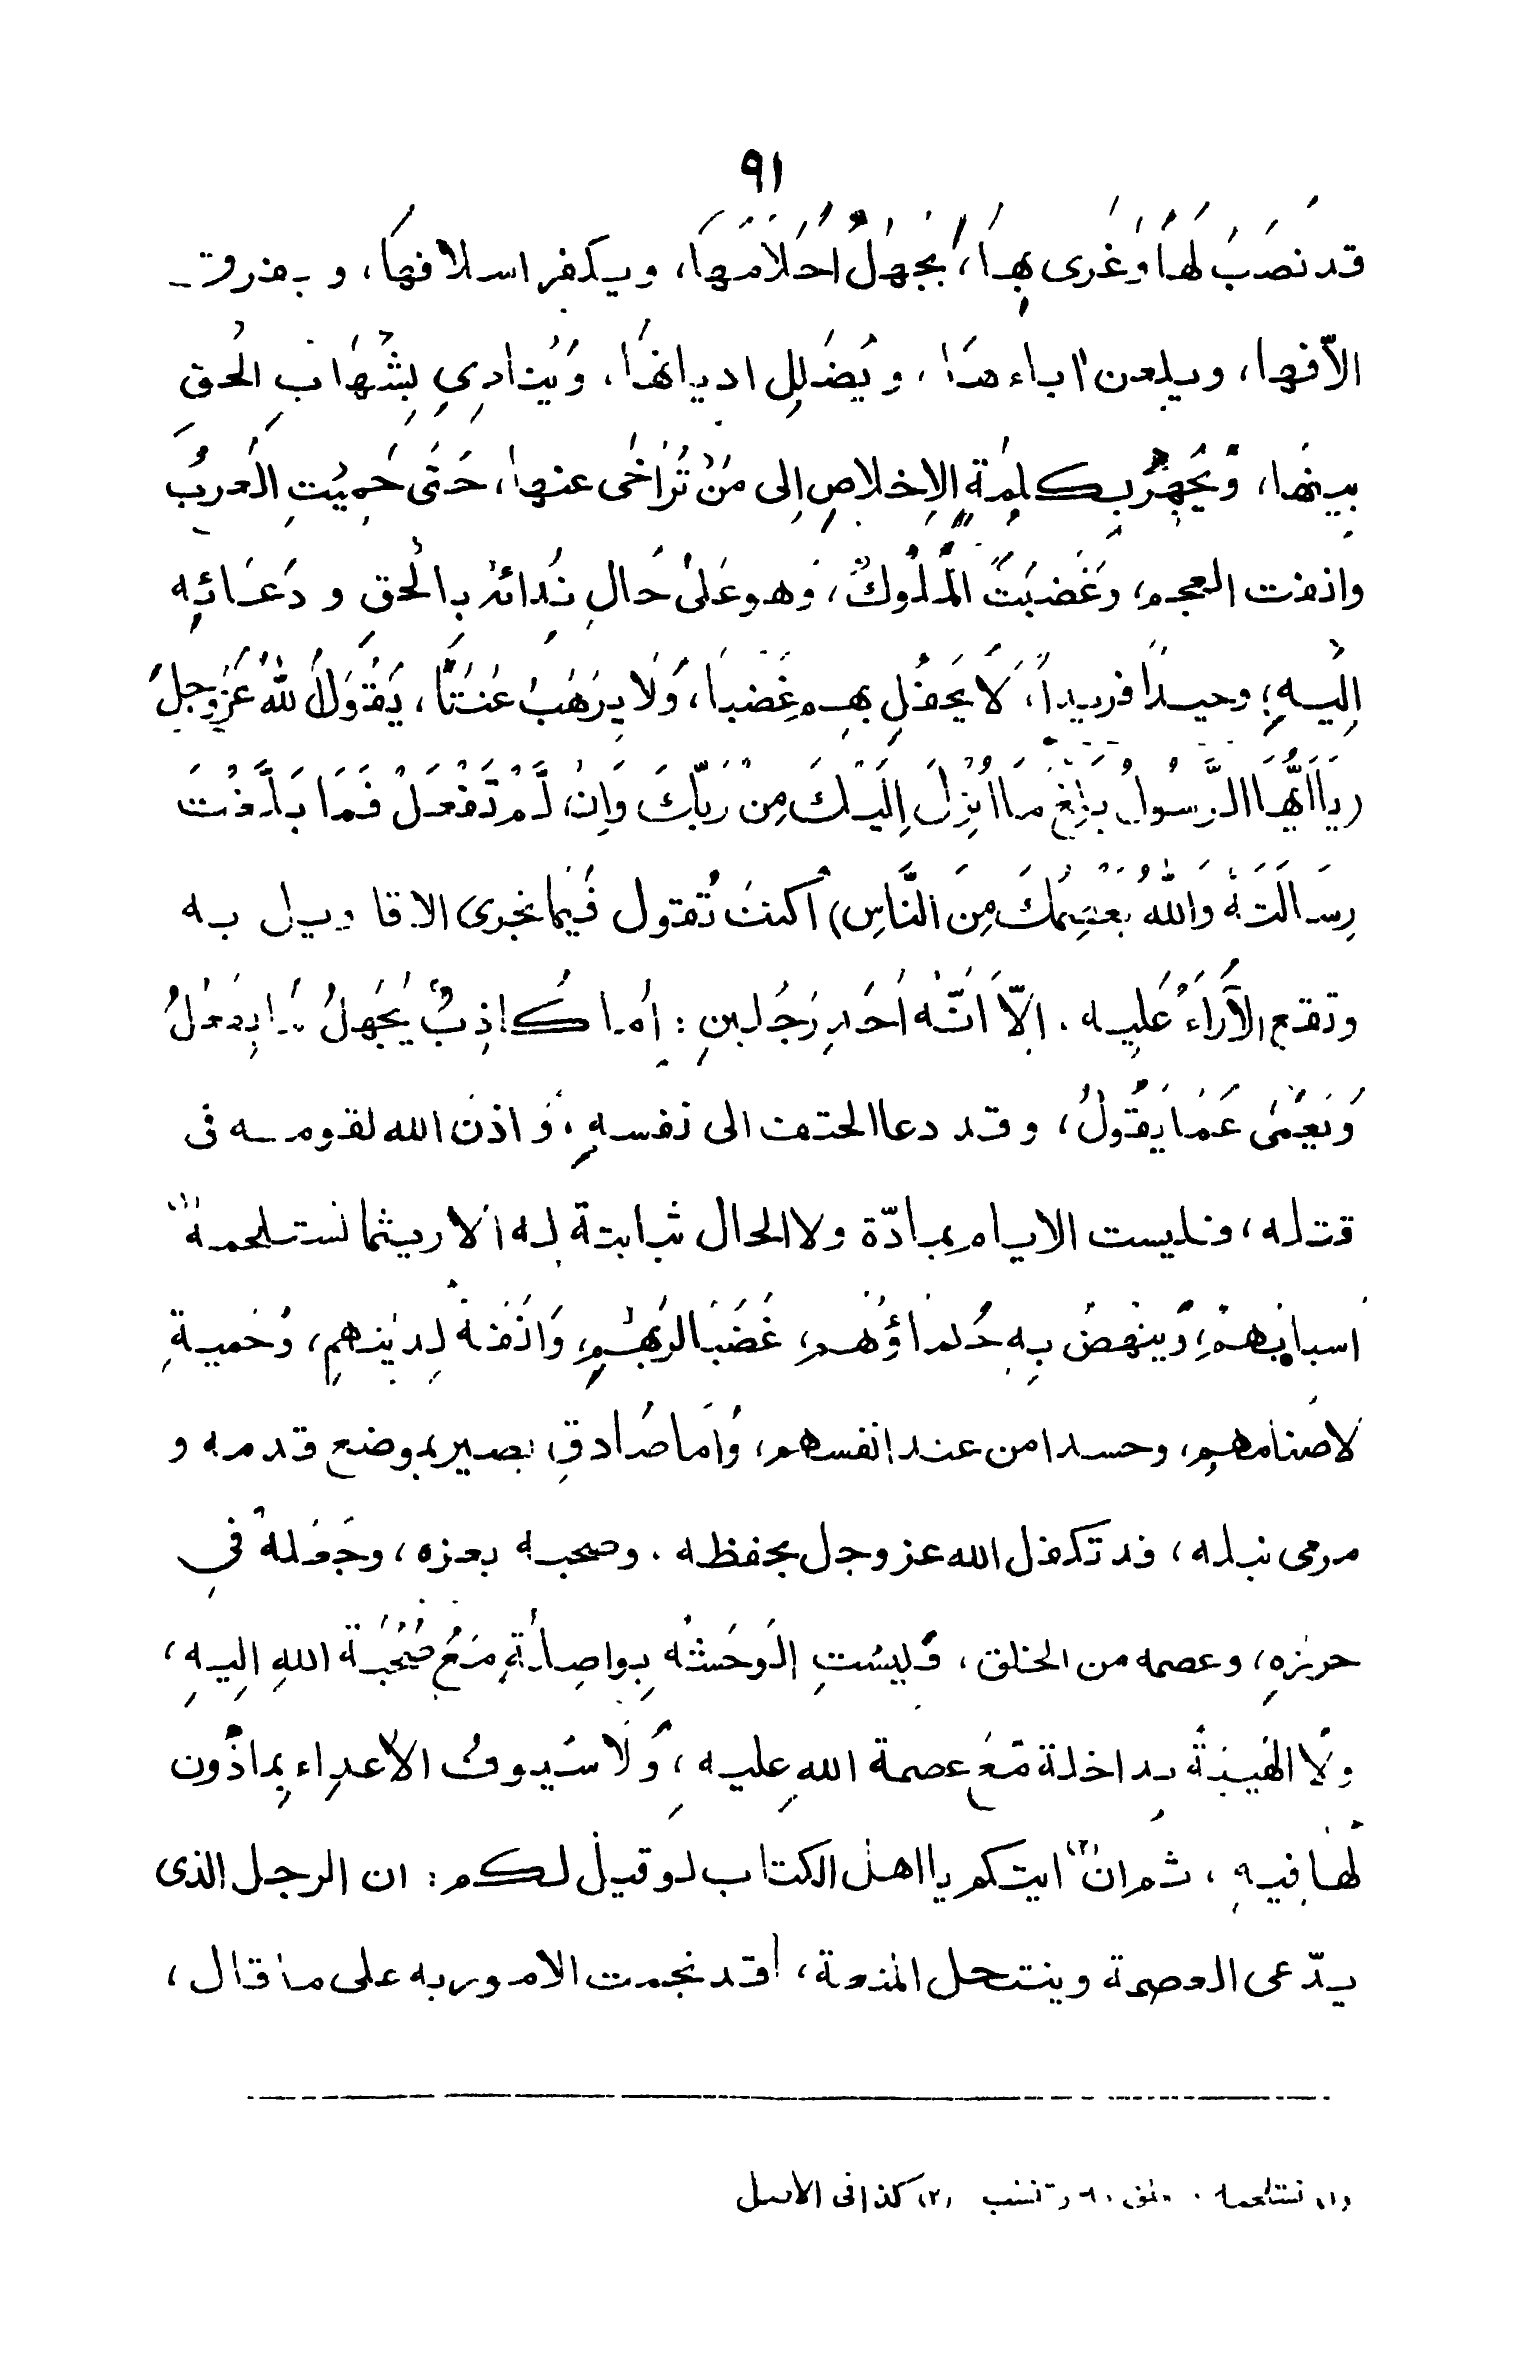 ٩١
قد نصَبَ لهَا وَغَرى بِهَا، يُجَهِّلُ أحْلَامَهَا، ويكفر اسلافهَا، و يفرق
الاّفها، ويلعن اباءهَا، ويُضَلِلِ اديانهَا، وَيُنادِي بِشَهَابِ الحَقِ
بينهَا، وَيُجْهِرُ بِكلِمَةِ الإِخلاصِ إلى مَنْ تَرَاخَى عنها، حَتى حَمِيَتِ العربُ
وانفت العجم، وَغَضبَتْ المُلُوكُ، وَهو عَلىٰ حَالِ نِدائهِ بالحق و دَعَائِهِ
إليهِ؛ وحيداً فريداً، لَا يَحفلِ بهم غَضَباً، وَلَا يَرهَبُ عَنَتاً، يَقوَلُ اللهُ عَزوجلَ
(يَا أَيُّهَا الرَّسُولُ بَلِّغْ مَا أُنْزِلَ إِلَيْكَ مِنْ رَبِّكَ وَإِن لَّمْ تَفْعَلْ فَمَا بَلَّغْتَ
رِسَالَتَهُ وَاللهُ يَعْصِمُكَ مِنَ النَّاسِ) أكنتَ تُقول فَيما تجرى الاقاويل به
وتقع الآرَاءُ عَليه. إلّا أنَّه أحَدِ رَجُلينِ: أما كَاذِبٌ يُجَهَلُ مَا يفعَلُ
وَيَعمَى عَمَا يَقُولُ، وقد دعا الحتف الى نفسهِ، وَاذنَ الله لقومه فى
قتله، فليست الايام بمادّة ولا الحال ثابتة له الا ريثما تستلحمه(١)
أسبابُهمْ، وَينهضُ بِهِ حُلمَاؤُهم، غَضَبَاً لرَبِهِم، وَانَفة لِدينهمِ، وَحَميةِ
لاصنامهم، وحسدا من عند انفسهم، وَأما صَادقِ بصير بموضع قدمه و
مرمى نبله، قد تكفل الله عز وجل بحفظه. وصحبه بعزه، وجَعله في
حرزهِ، وعصمه من الخلق، فَليسَتِ الوَحَشَه بِواصِلَةِ مَعَ صُحْبَة اللهِ إليهِ،
ولَا الهَيبَة بداخلة مَعَ عصمة اللهِ عليه، وَلَا سُيوفُ الأعداء بِمأذون
لهَا فِيهِ، ثم ان(٢) ايتكم يا اهل الكتاب لو قيل لكم: ان الرجل الذى
يدّعى العصمة وينتحل المنعة، أقد نجمت الامور به على ما قال،
(١) تستلحمه . تلفق . و تنشب (٢) كذا فى الاصل